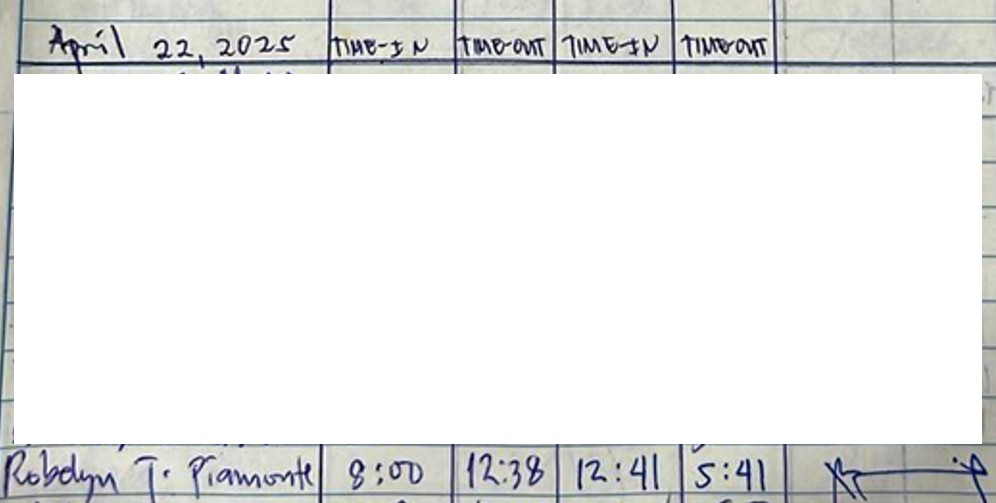 April 22, 2025 TIME-IN TIME-OUT TIME-IN TIME-OUT
Robelyn T. Piamonte 8:00 12:38 12:41 5:41